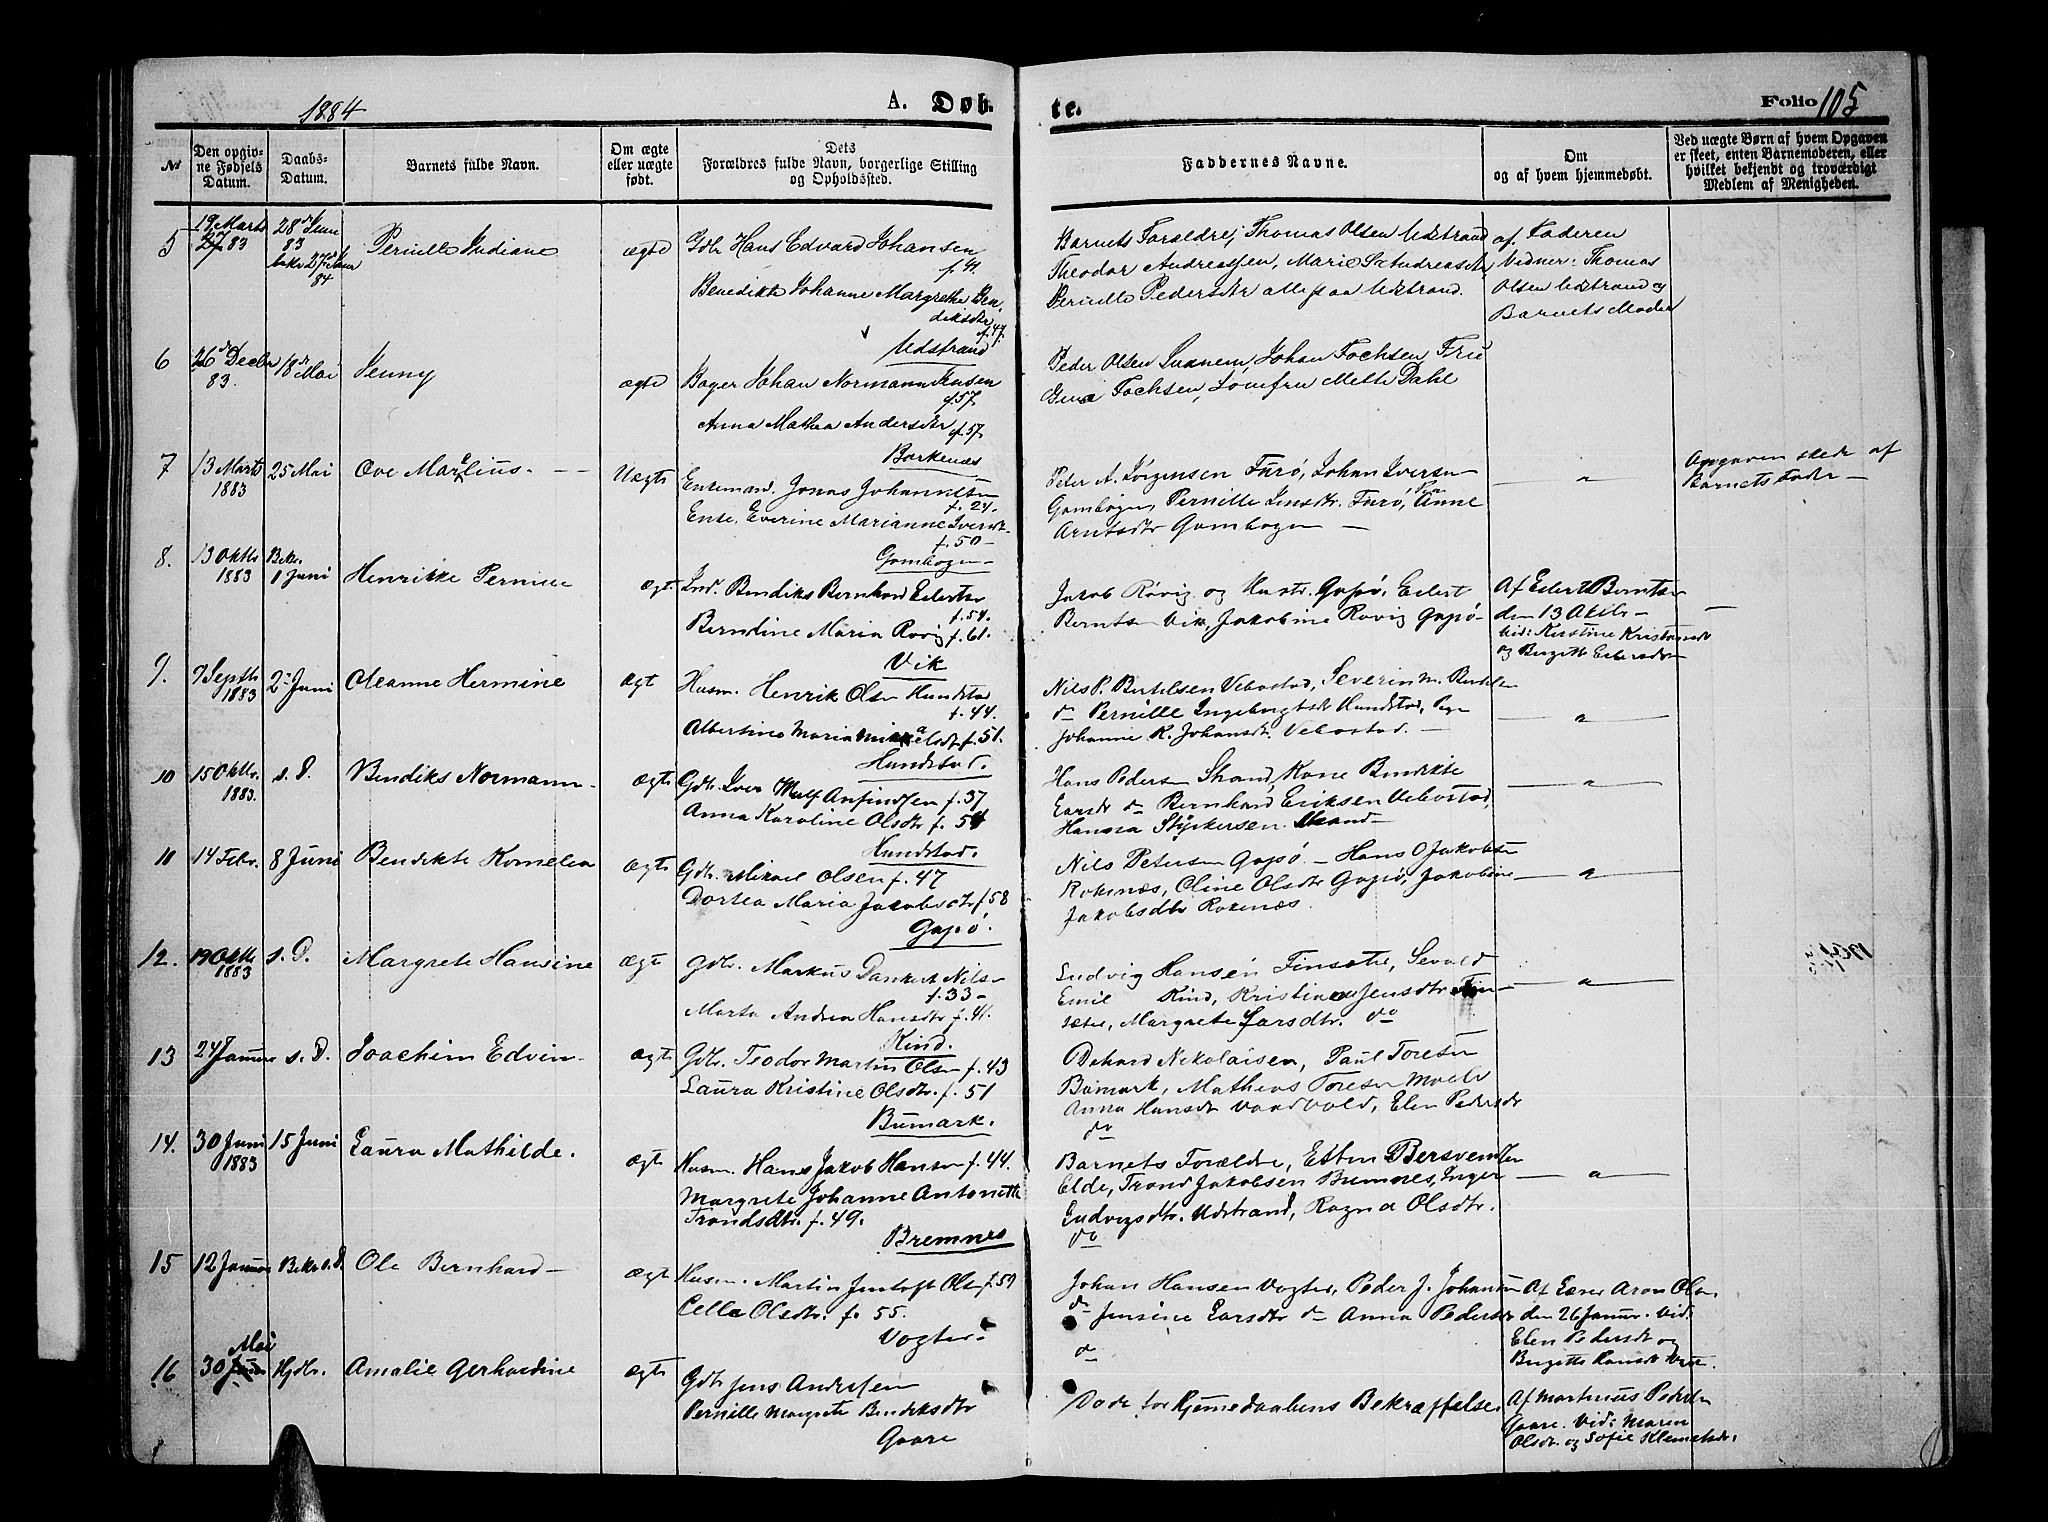 1884
A. Døb-
te.
Folio 105
Nr
Den opgiv-
ne Fødsels
Datum.
Daabs-
Datum.
Barnets fulde Navn.
Om ægte
eller uægte
født.
Dets
Forældres fulde Navn, borgerlige Stilling
og Opholdssted.
Faddernes Navne.
Om
og af hvem hjemmedøbt.
Ved uægte Børn af hvem Opgaven
er skeet, enten Barnemoderen, eller
hvilket bekjendt og troværdigt
Medlem af Menigheden.
5
19 Marts
27 83
28de Juni
83
84
Pernille Indiane
ægte
Gdbr Hans Edvard Johansen
f. 41.
Benedikte Johanne Margrethe Ben-
diksdtr
f. 47.
Udstrand
Barnets Forældre, Thomas Olsen Udstrand
Theodor Andreassen, Marie Andreasdtr
Pernille Pedersdtr alle paa Udstrand.
af Faderen
Vidner: Thomas
Olsen Udstrand og
Barnets Moder
6
26de Decbr
83.
18de Mai
Jenny
ægte
Bager Johan Normann Jensen
f. 57.
Anna Mathea Andersdtr
f. 57.
Borkenæs
Peder Olsen, Johan Fochsen Fru
Gina Fochsen, Mette Dahl
7
13 Marts
1883
25 Mai
Ove Marelius.
Uægte
Enkemand. Jonas Johannesen
f. 24.
Enke. Everine Marianne Iversdt.
f. 50
Gombogen
Peter A. Jørgensen Furø, Johan Iversen
Gombogen, Pernille Jensdtr. Furø, Anne
Arntsdtr Gombogen
"
Opgaven skede af
Barnets Fader
8.
13 Oktbr
1883
Bekr.
1 Juni
Henrikke Pernille
ægte
Ind. Bendiks Bernhard Eilertsen
f. 54.
Berntine Maria Røvig f. 61.
Vik
Jakob Røvig og Hustr. Gapø, Eilert
Berntsen Vik, Jakobine Røvig Gapø
Af Eilert Berntsen
den 13 Oktbr
Vid: Kirstine Kristiansdtr
og Birgitte Eilersdtr
9.
7 Septbr
1883
2 Juni
Oleanne Hermine
ægt
Husm. Henrik Olsen Hundstad
f. 44.
Albertine Maria Mikkalsdt f. 51.
Hundstad.
Nils P. Bertelsen Vebostad, Severin M. Bertelsen
do Pernille Ingebrigtsdtr Hundstad, Pige
Johanne K. Johansdt. Vebostad.
"
10
15 Oktbr.
1883.
s. D.
Bendiks Normann
ægte
Gdbr. Iver Wulf Arfindsen f. 37
Anna Karoline Olsdtr f. 54
Hundstad.
Hans Pedersen Strand, Kone Bendikte
Larsdt do Bernhard Eriksen Vebostad,
Hansea Styrkersen Strand
"
11
14 Febr.
8 Juni
Bendikte Kornelia
ægte
Gdbr. Mikael Olsen f. 47
Dortea Maria Jacobsdtr f. 58
Gapø.
Nils Petersen Gapø. Hans O Jakobsen
Rokenæs, Oline Olsdtr Gapø, Jakobine
Jakobsdtr Rokenæs.
"
12.
19 Oktbr
1883
s. D.
Margrete Hansine
ægt
Gdbr. Markus Dankert Nilsen
f. 33
Marta Andrea Hansdtr f. 41.
Kind.
Ludvig Hansen Finsæte, Sevald
Emil Kind, Kristiane Jensdtr Fin-
sæter, Margrete Larsdtr. do
"
13
24 Januar
s. D.
Joachim Edvin
ægte
Gdbr. Teodor Martin Olsen f. 43
Laura Kristine Olsdtr. f. 51
Bumark.
Nikolaisen, Paul Toresen
Bumark, Mathias Toresen Moelv
Anna Hansdt Vandvold, Elen Pedersdtr
do
14.
30 Juni
1883
15 Juni
Laura Mathilde.
ægte
Husm. Hans Jakob Hansen f. 44.
Margrete Johanne Antonette
Trondsdtr. f. 49.
Bremnes
Barnets Forældre, Etten Bersvendsen
Elde, Trond Jakobsen Bremnes, Inger
Ludvigsdtr. Udstrand, Ragna Olsdtr.
do
"
15
12 Januar
Bekr. s. D.
Ole Bernhard
ægte
Husm. Martin Jentoft Olsen f. 59
Cella Olsdtr. f. 55.
Vogter.
Johan Hansen Vogter, Peder J. Johansen
do Jensine Larsdtr do Anna Pedersdtr
do
Af Lærer Aron Olsen
den 26 Januar. Vid:
Elen Pedersdt og
Birgitte Hansdt
16
Mai
30 Juni
Hjdbr.
Amalie Gerhardine
ægte
Gdbr Jens Andersen
Pernille Margrete Bendiksdtr
Gaare
Døde før Hjemmedaabens Bekræftelse.
Af Martinus Pedersen
Gaare. Vid: Maren
Olsdt. og Sofie Klemetsdt.